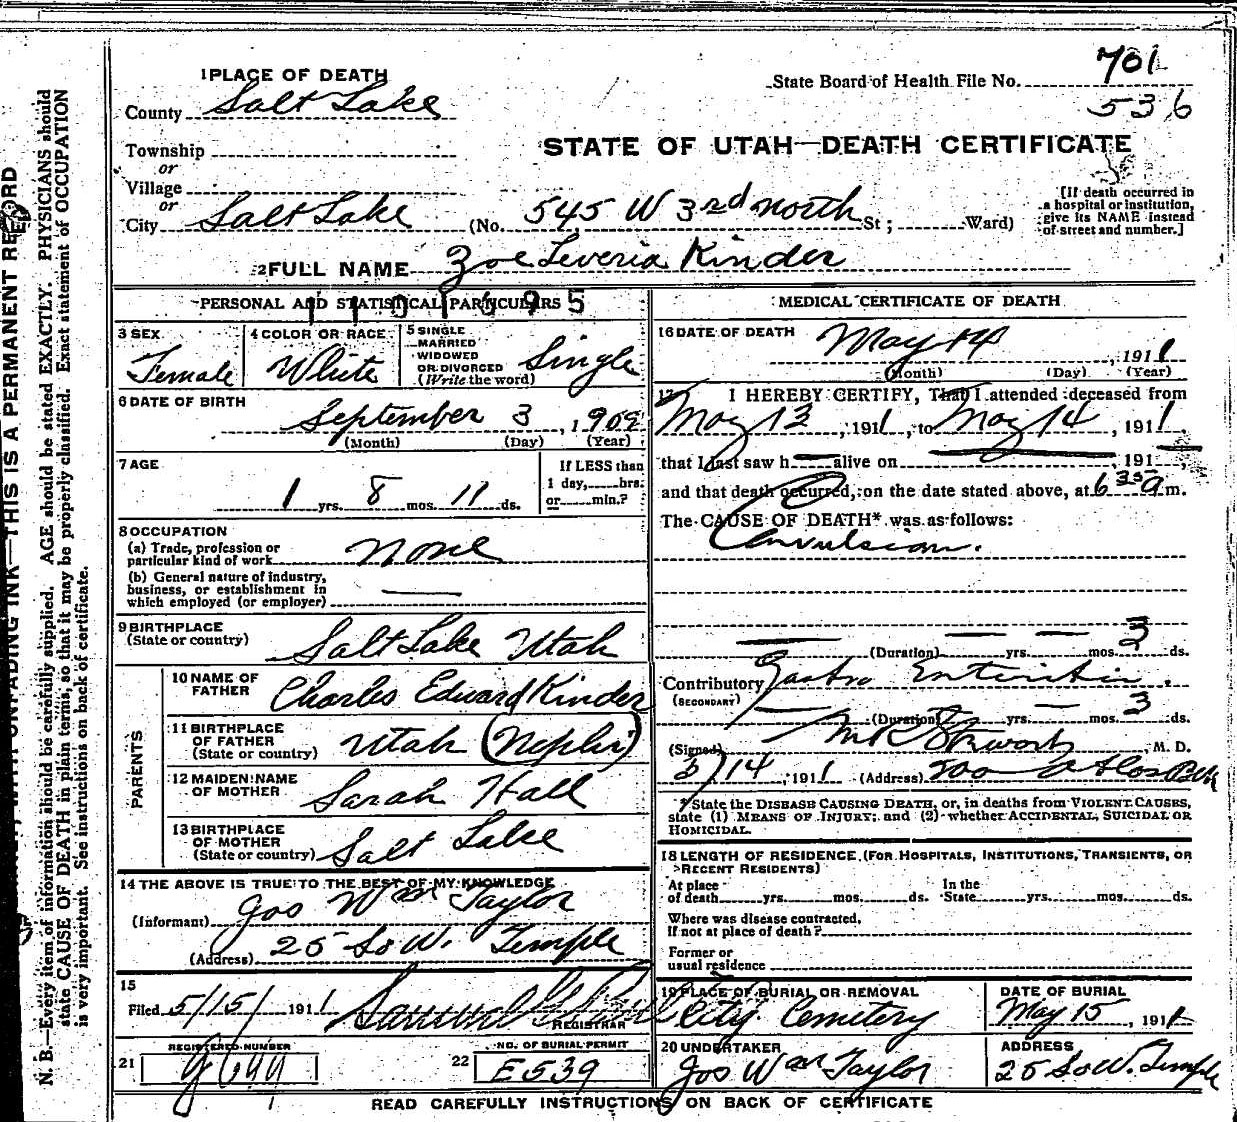 701
State Board of Health File No.
536
1 PLACE OF DEATH
County Salt Lake
STATE OF UTAH—DEATH CERTIFICATE
Township
or
Village
or
City Salt Lake (No. 545 W 3rd North St; Ward)
[If death occurred in
a hospital or institution,
give its NAME instead
of street and number.]
2 FULL NAME Zoe Leveria Kinder
PERSONAL AND STATISTICAL PARTICULARS
1101695
3 SEX
Female
4 COLOR OR RACE
White
5 SINGLE
MARRIED
WIDOWED
OR DIVORCED
(Write the word)
Single
6 DATE OF BIRTH
September 3, 1909
(Month) (Day) (Year)
7 AGE
1 yrs. 8 mos. 11 ds.
If LESS than
1 day, hrs.
or min.?
8 OCCUPATION
(a) Trade, profession or
particular kind of work None
(b) General nature of industry,
business, or establishment in
which employed (or employer) —
9 BIRTHPLACE
(State or country) Salt Lake Utah
PARENTS
10 NAME OF
FATHER Charles Edward Kinder
11 BIRTHPLACE
OF FATHER
(State or country) Utah (Nephi)
12 MAIDEN NAME
OF MOTHER Sarah Hall
13 BIRTHPLACE
OF MOTHER
(State or country) Salt Lake
14 THE ABOVE IS TRUE TO THE BEST OF MY KNOWLEDGE
(Informant) Jos Wm Taylor
(Address) 25 So W. Temple
15
Filed 5/15/ 1911 Samuel G
REGISTRAR
REGISTERED NUMBER
21
NO. OF BURIAL PERMIT
22 E539
MEDICAL CERTIFICATE OF DEATH
16 DATE OF DEATH
May 14, 1911
(Month) (Day) (Year)
17 I HEREBY CERTIFY, That I attended deceased from
May 13, 1911, to May 14, 1911,
that I last saw h— alive on —, 191—,
and that death occurred, on the date stated above, at 6 35 a m.
The CAUSE OF DEATH* was as follows:
Convulsion.
(Duration) — yrs. — mos. 3 ds.
Contributory Gastro Enteritis.
(SECONDARY)
(Duration) — yrs. — mos. 3 ds.
(Signed) M. D.
5/14, 1911 (Address) 500 Atlas Blk
*State the DISEASE CAUSING DEATH, or, in deaths from VIOLENT CAUSES,
state (1) MEANS OF INJURY; and (2) whether ACCIDENTAL, SUICIDAL OR
HOMICIDAL.
18 LENGTH OF RESIDENCE (FOR HOSPITALS, INSTITUTIONS, TRANSIENTS, OR
RECENT RESIDENTS)
At place
of death yrs. mos. ds.
In the
State yrs. mos. ds.
Where was disease contracted,
If not at place of death?
Former or
usual residence
19 PLACE OF BURIAL OR REMOVAL
City Cemetery
DATE OF BURIAL
May 15, 1911
20 UNDERTAKER
Jos Wm Taylor
ADDRESS
25 So W. Temple
READ CAREFULLY INSTRUCTIONS ON BACK OF CERTIFICATE
UNFADING INK—THIS IS A PERMANENT RECORD
N. B.—Every item of information should be carefully supplied. AGE should be stated EXACTLY. PHYSICIANS should
state CAUSE OF DEATH in plain terms, so that it may be properly classified. Exact statement of OCCUPATION
is very important. See instructions on back of certificate.